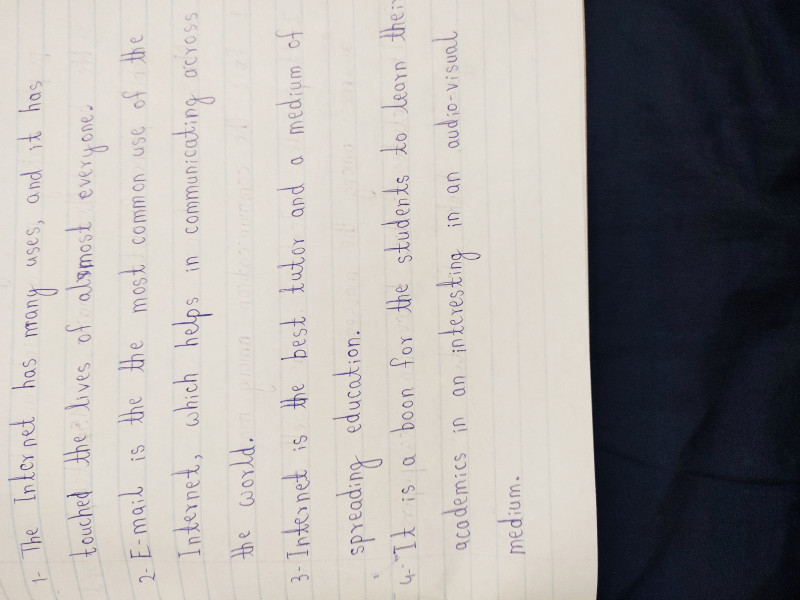 1- The Internet has many uses, and it has
touched the lives of almost everyone.
2- E-mail is the the most common use of the
Internet, which helps in communicating across
the world.
3- Internet is the best tutor and a medium of
spreading education.
4- It is a boon for the students to learn their
academics in an interesting in an audio-visual
medium.